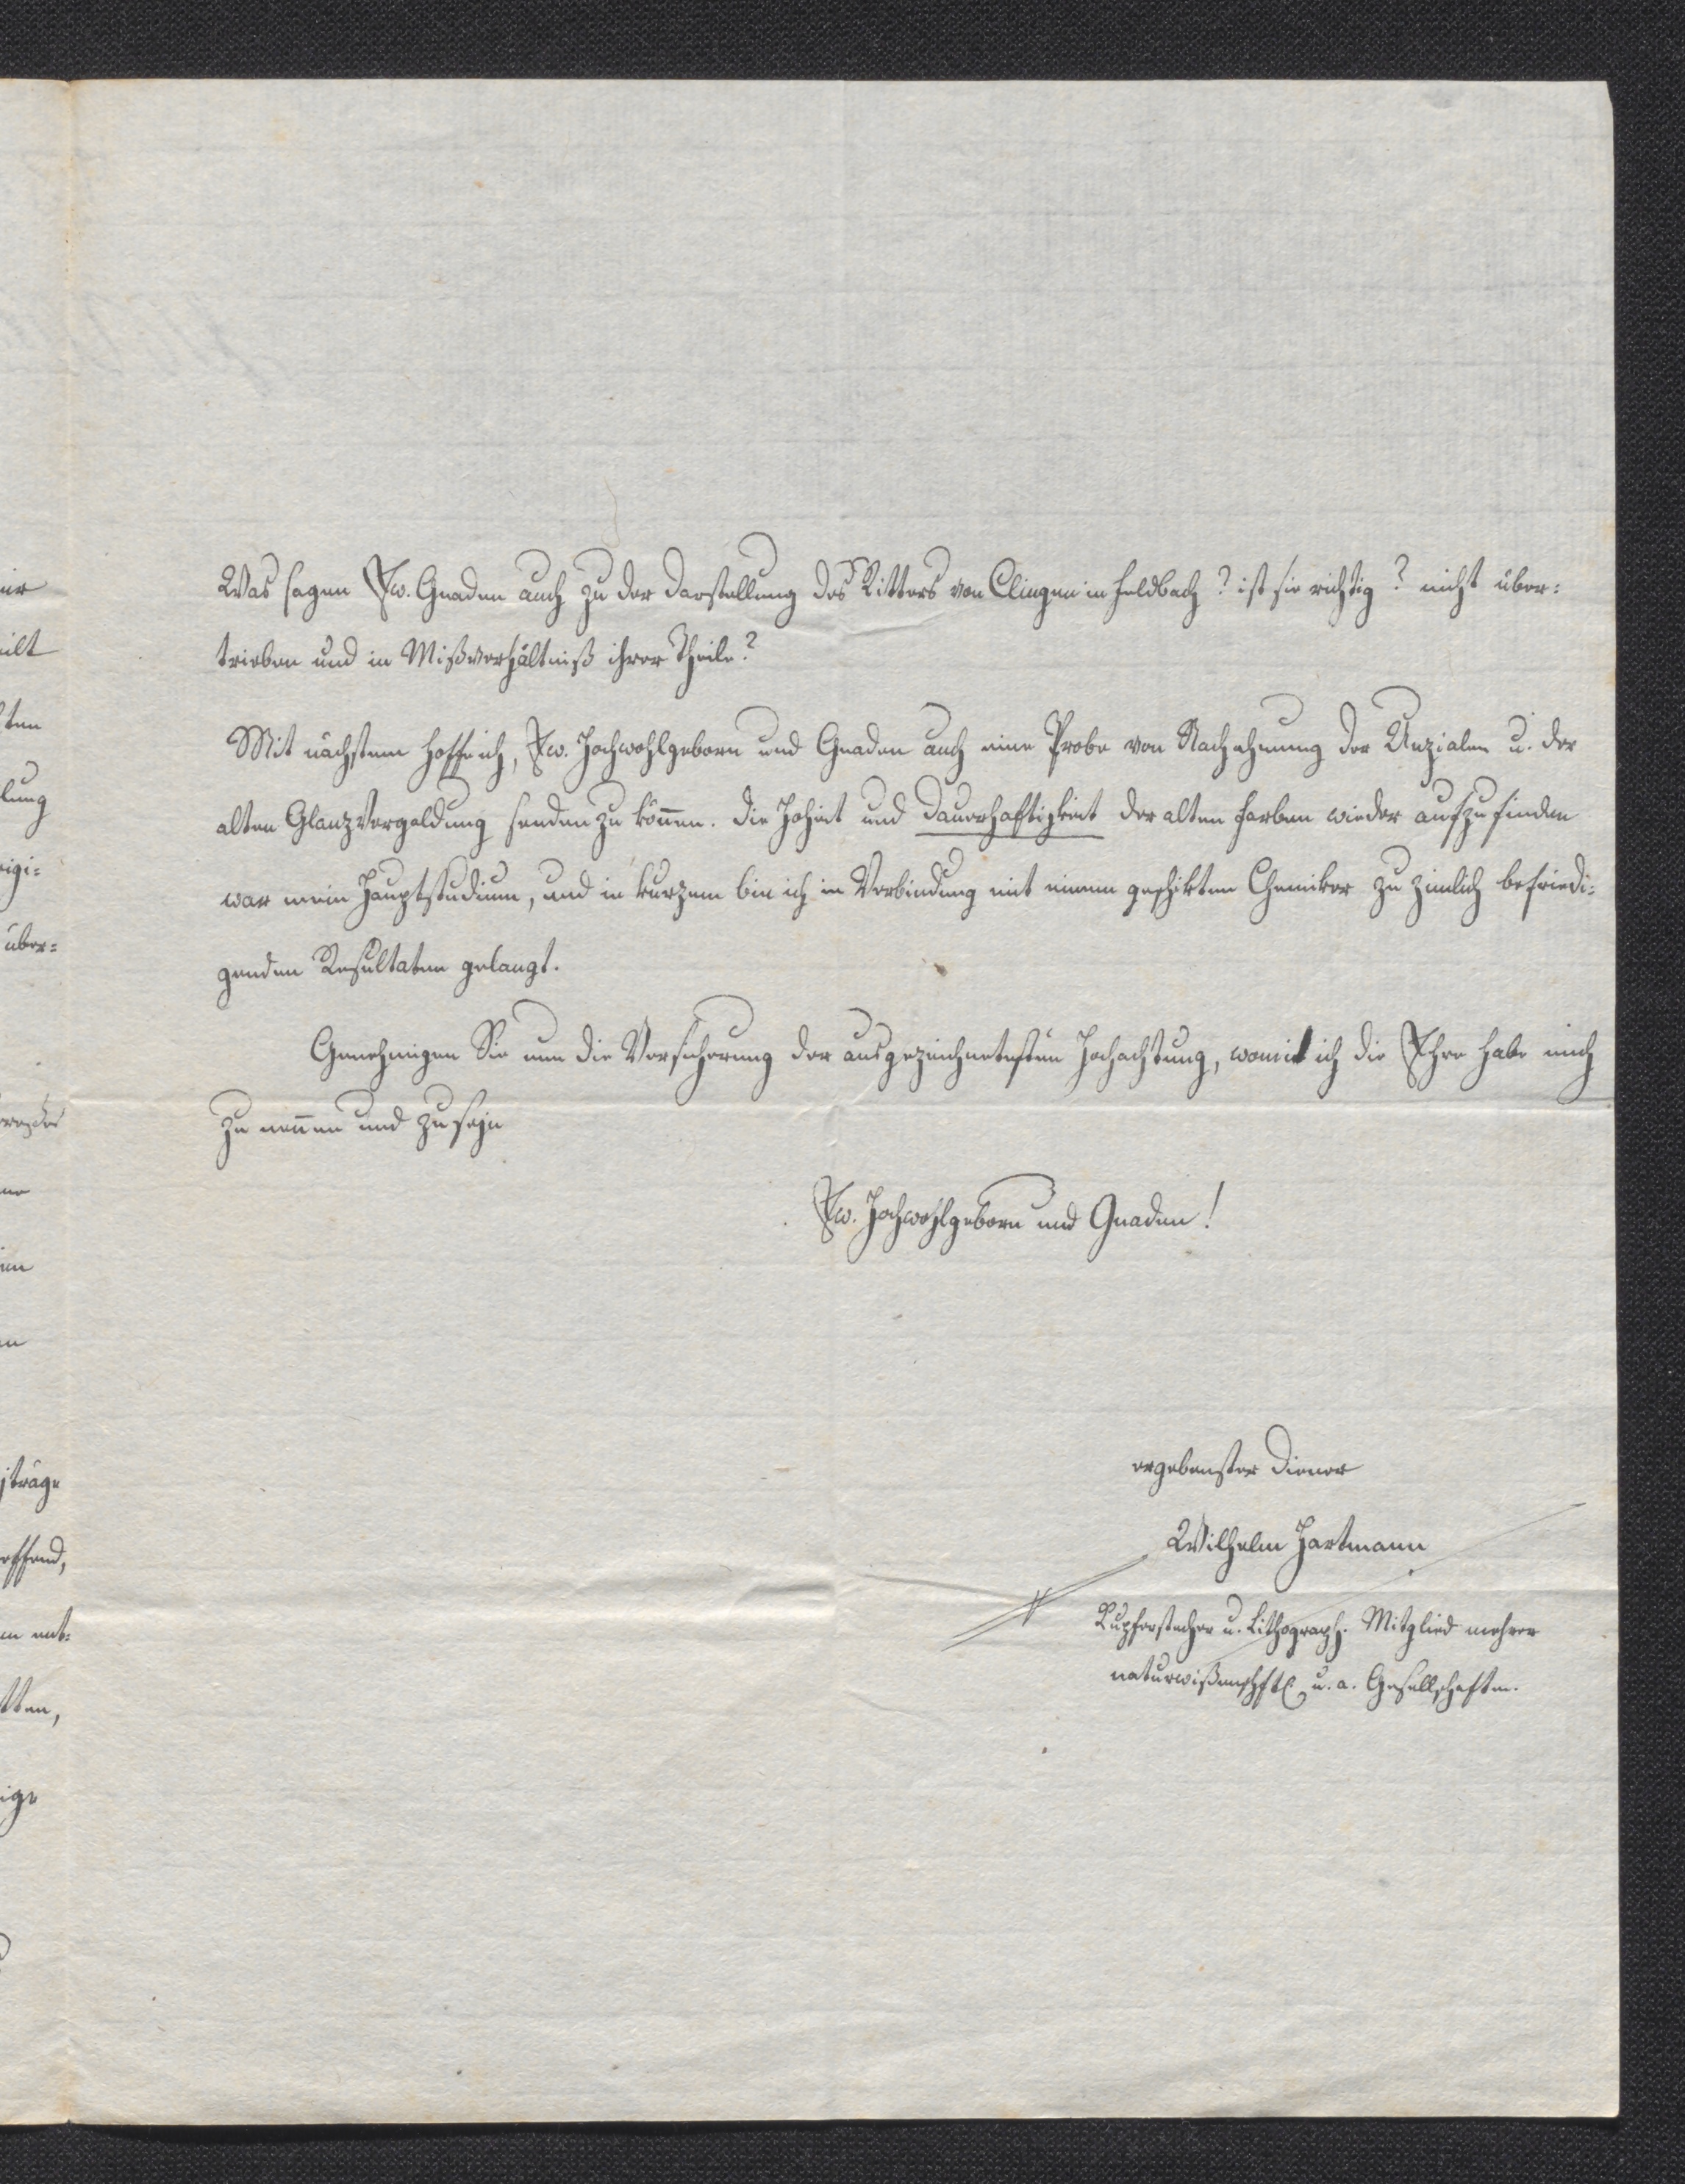 Was sagen Ew. Gnaden auch zu der Darstellung des Ritters von Clingen in Feldbach? ist sie richtig? nicht über:
trieben und in Mißverhältniß ihrer Theile?
Mit nächstem hoffe ich, Ew. Hochwohlgeborn und Gnaden auch eine Probe von Nachahmung der Unzialen u. der
alten Glanzvergoldung senden zu kön̄en. Die Hoheit und Dauerhaftigkeit der alten Farben wieder aufzufinden
war mein Hauptstudium, und in kurzem bin ich in Verbindung mit einem geschikten Chemiker zu zimlich befriedi:
genden Resultaten gelangt.
Genehmigen Sie nun die Versicherung der ausgezeichnetesten Hochachtung, womit ich die Ehre habe mich
zu nen̄en und zu seyn
Ew. Hochwohlgeborn und Gnaden!
ergebenster Diener
Wilhelm Hartmann
Kupferstecher u. Lithograph. Mitglied mehrer
naturwißenschftl. u. a. Gesellschaften.